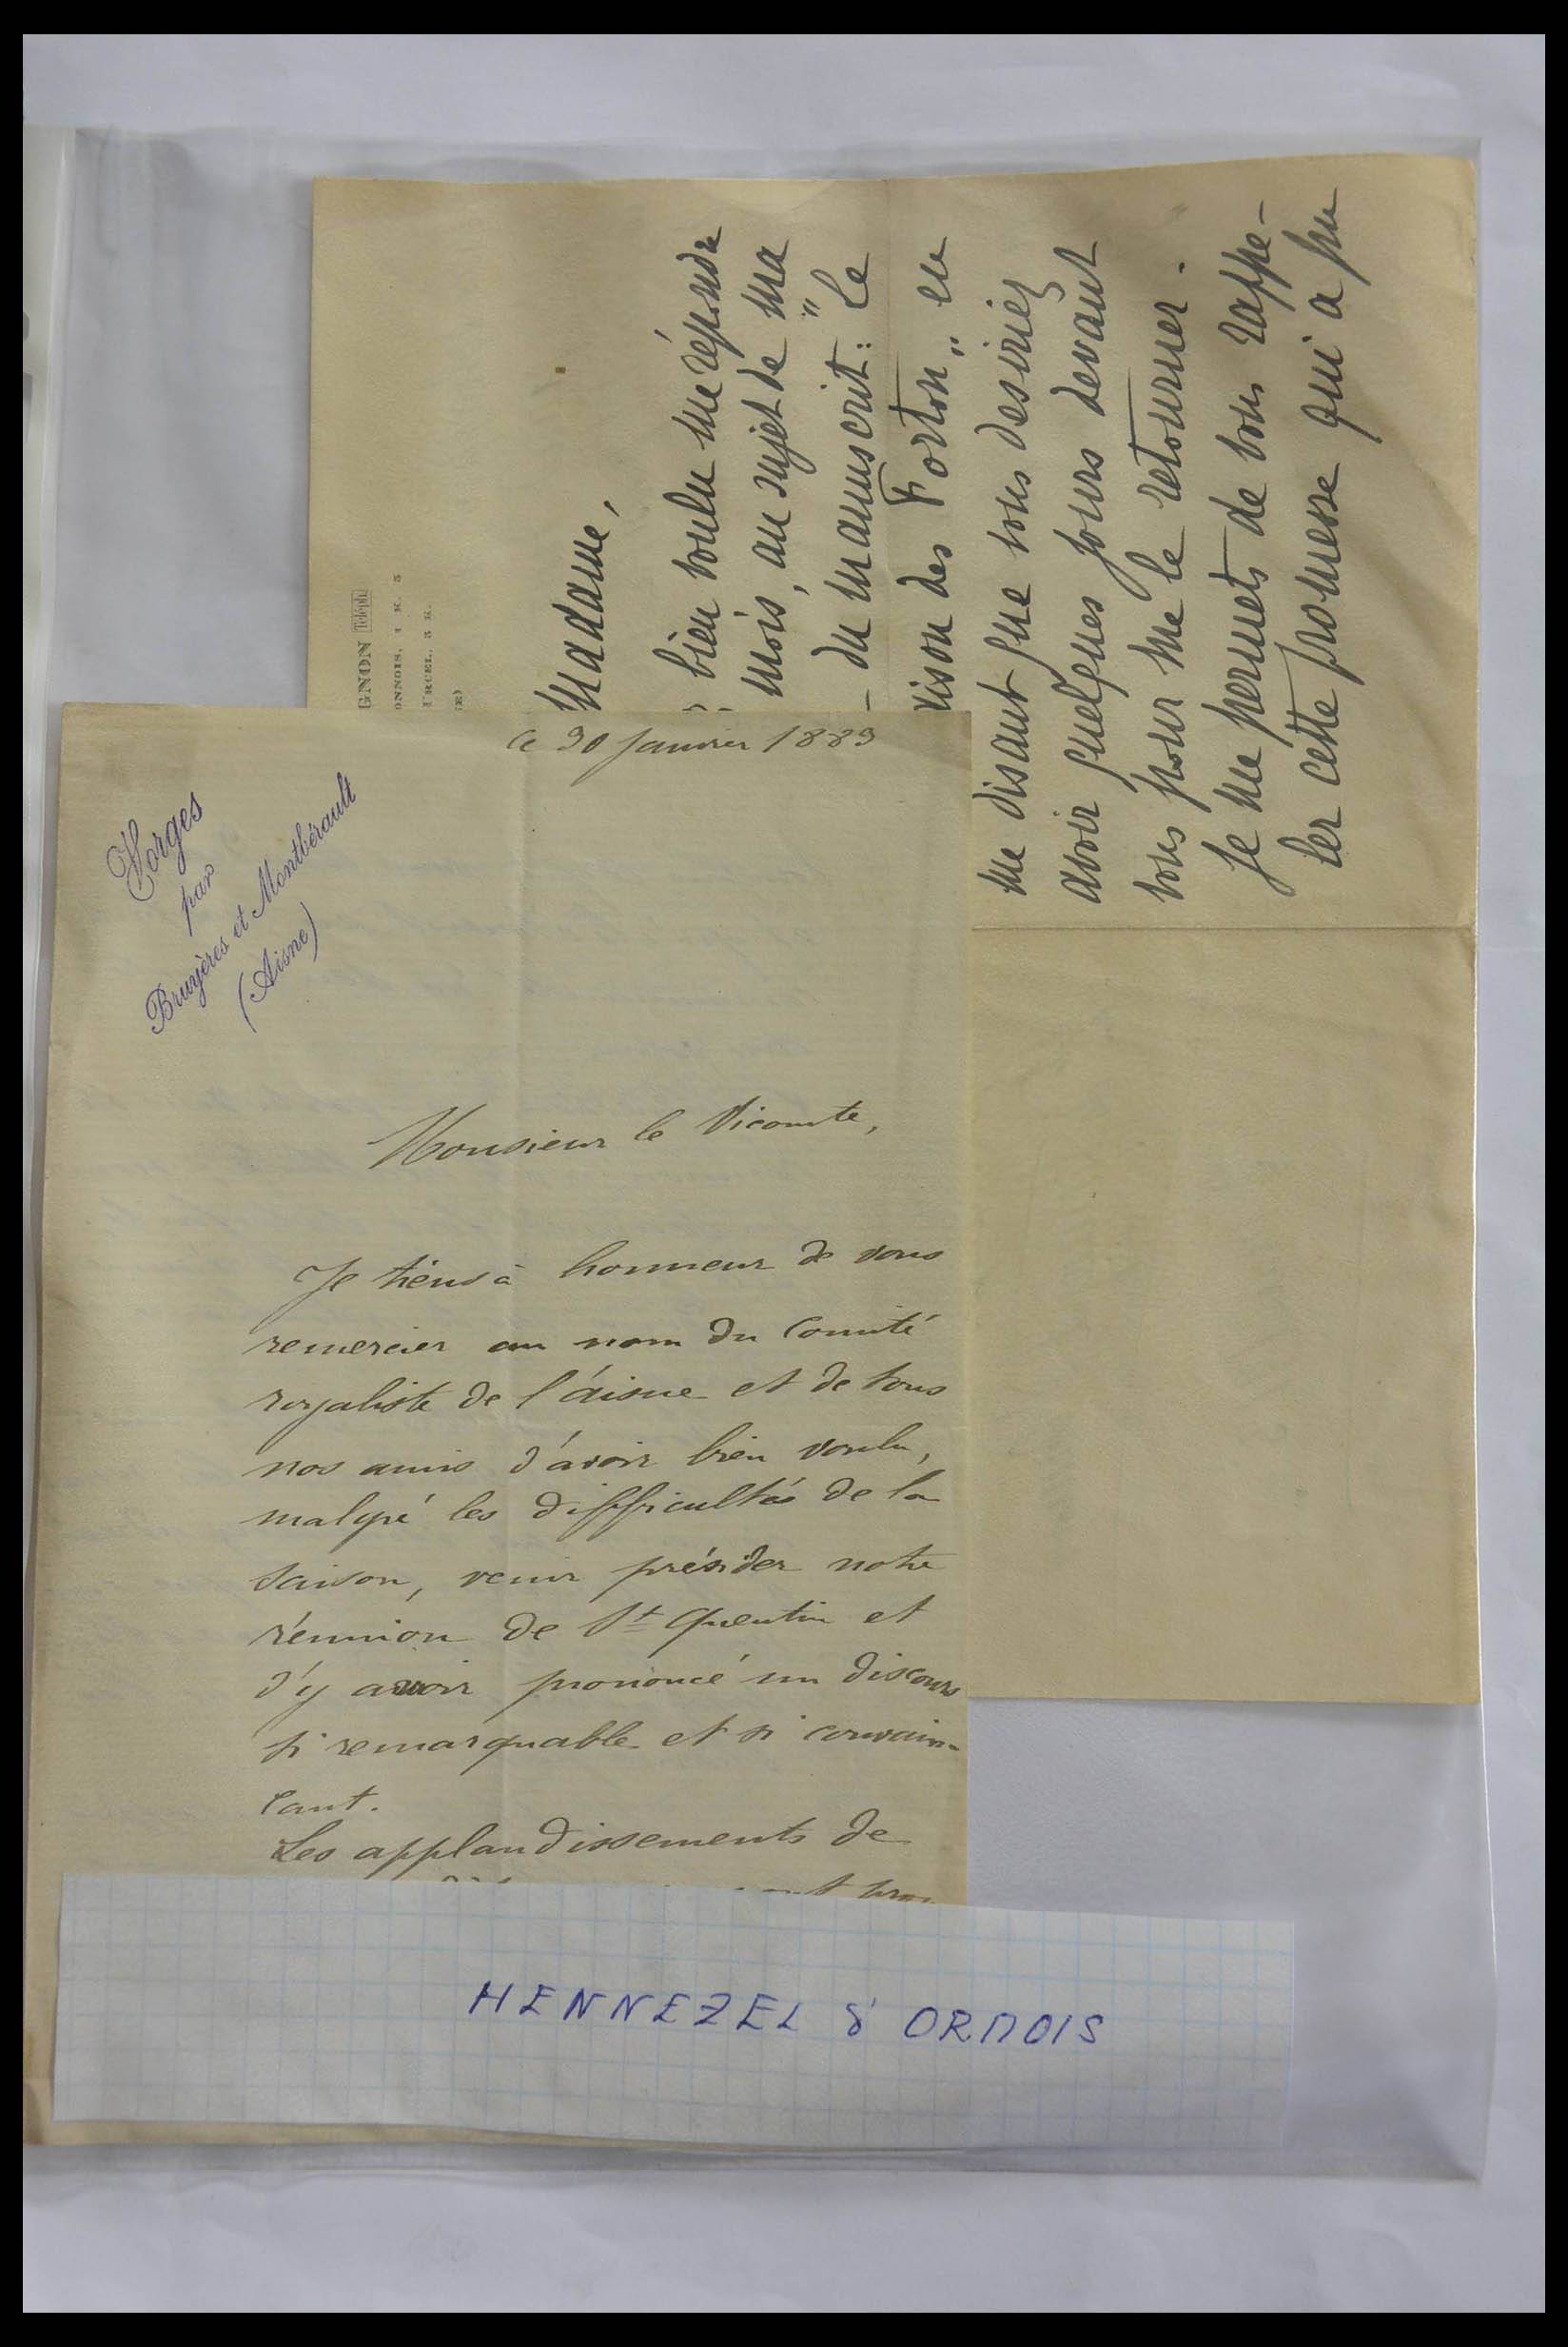 GNON Téléph
ONNOIS, 1 K. 5
URCEL, 3 K.
Madame,
bien voulu me répondre
mois, au sujet de ma
– du manuscrit : " Le
des Forton „ en
me disant que vous desiriez
avoir quelques jours devant
vous pour me le retourner.
Je me permets de vous rappe-
ler cette promesse qui a pu
Vorges
par
Bruyères et Montbérault
(Aisne)
le 30 Janvier 1889
Monsieur le Vicomte,
Je tiens à honneur de vous
remercier au nom du Comité
royaliste de l'aisne et de tous
nos amis d'avoir bien voulu,
malgré les difficultés de la
saison, venir présider notre
réunion de St Quentin et
d'y avoir prononcé un discours
si remarquable et si convain-
cant.
Les applaudissements de
HENNEZEL d'ORMOIS